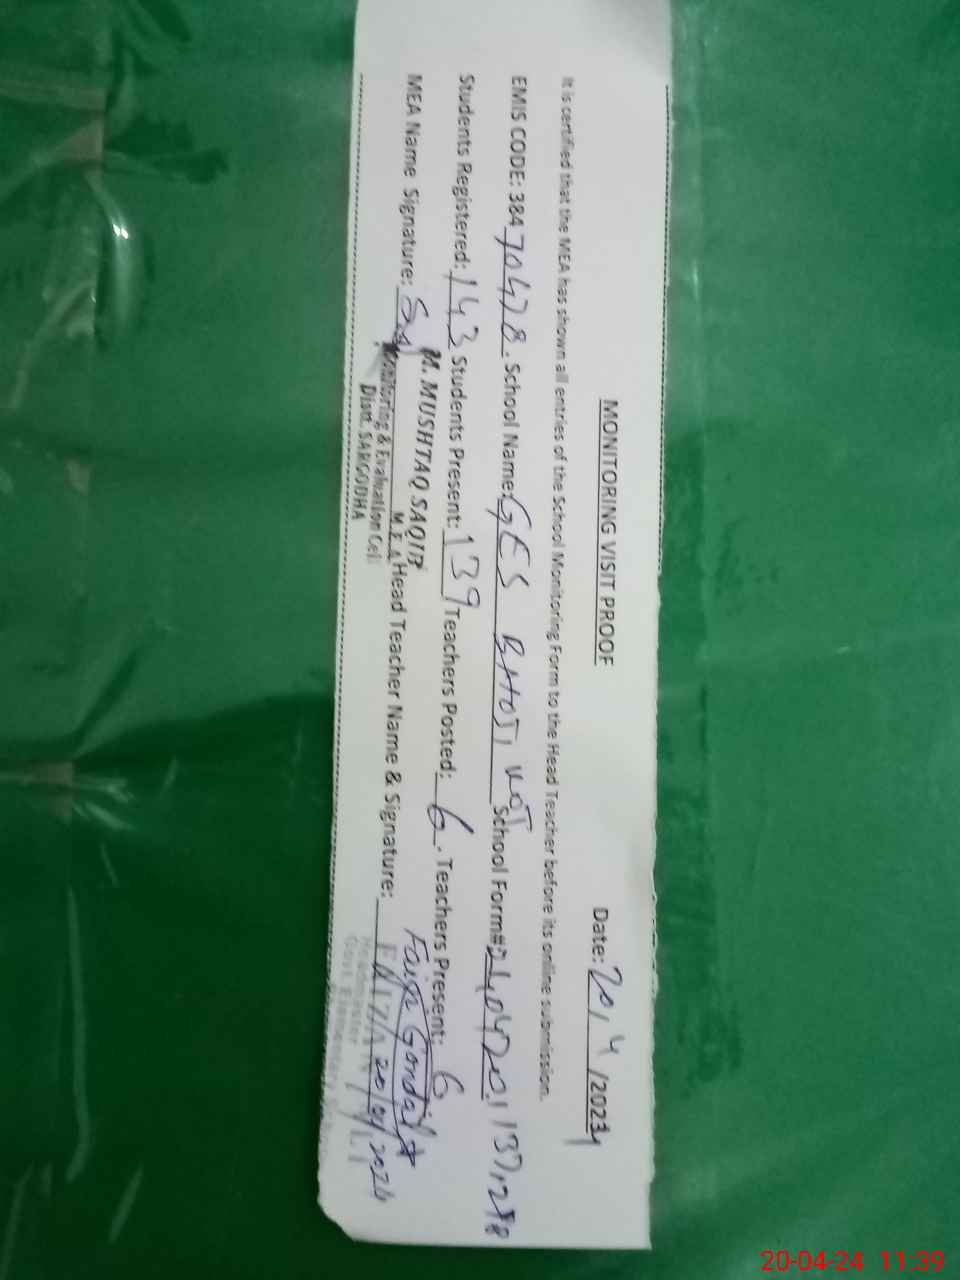 MONITORING VISIT PROOF
Date: 20/4/2024
It is certified that the MEA has shown all entries of the School Monitoring Form to the Head Teacher before its online submission.
EMIS CODE: 38470478. School Name: GES BHOJI KOT School Form#
Students Registered: 143 Students Present: 139 Teachers Posted: 6. Teachers Present: 6
MEA Name Signature: Head Teacher Name & Signature: Faiza Gondal
M. MUSHTAQ SAQIB
M.E.A
Monitoring & Evaluation Cell
Distt. SARGODHA
20/04/2024
Headmaster
20-04-24 11:39